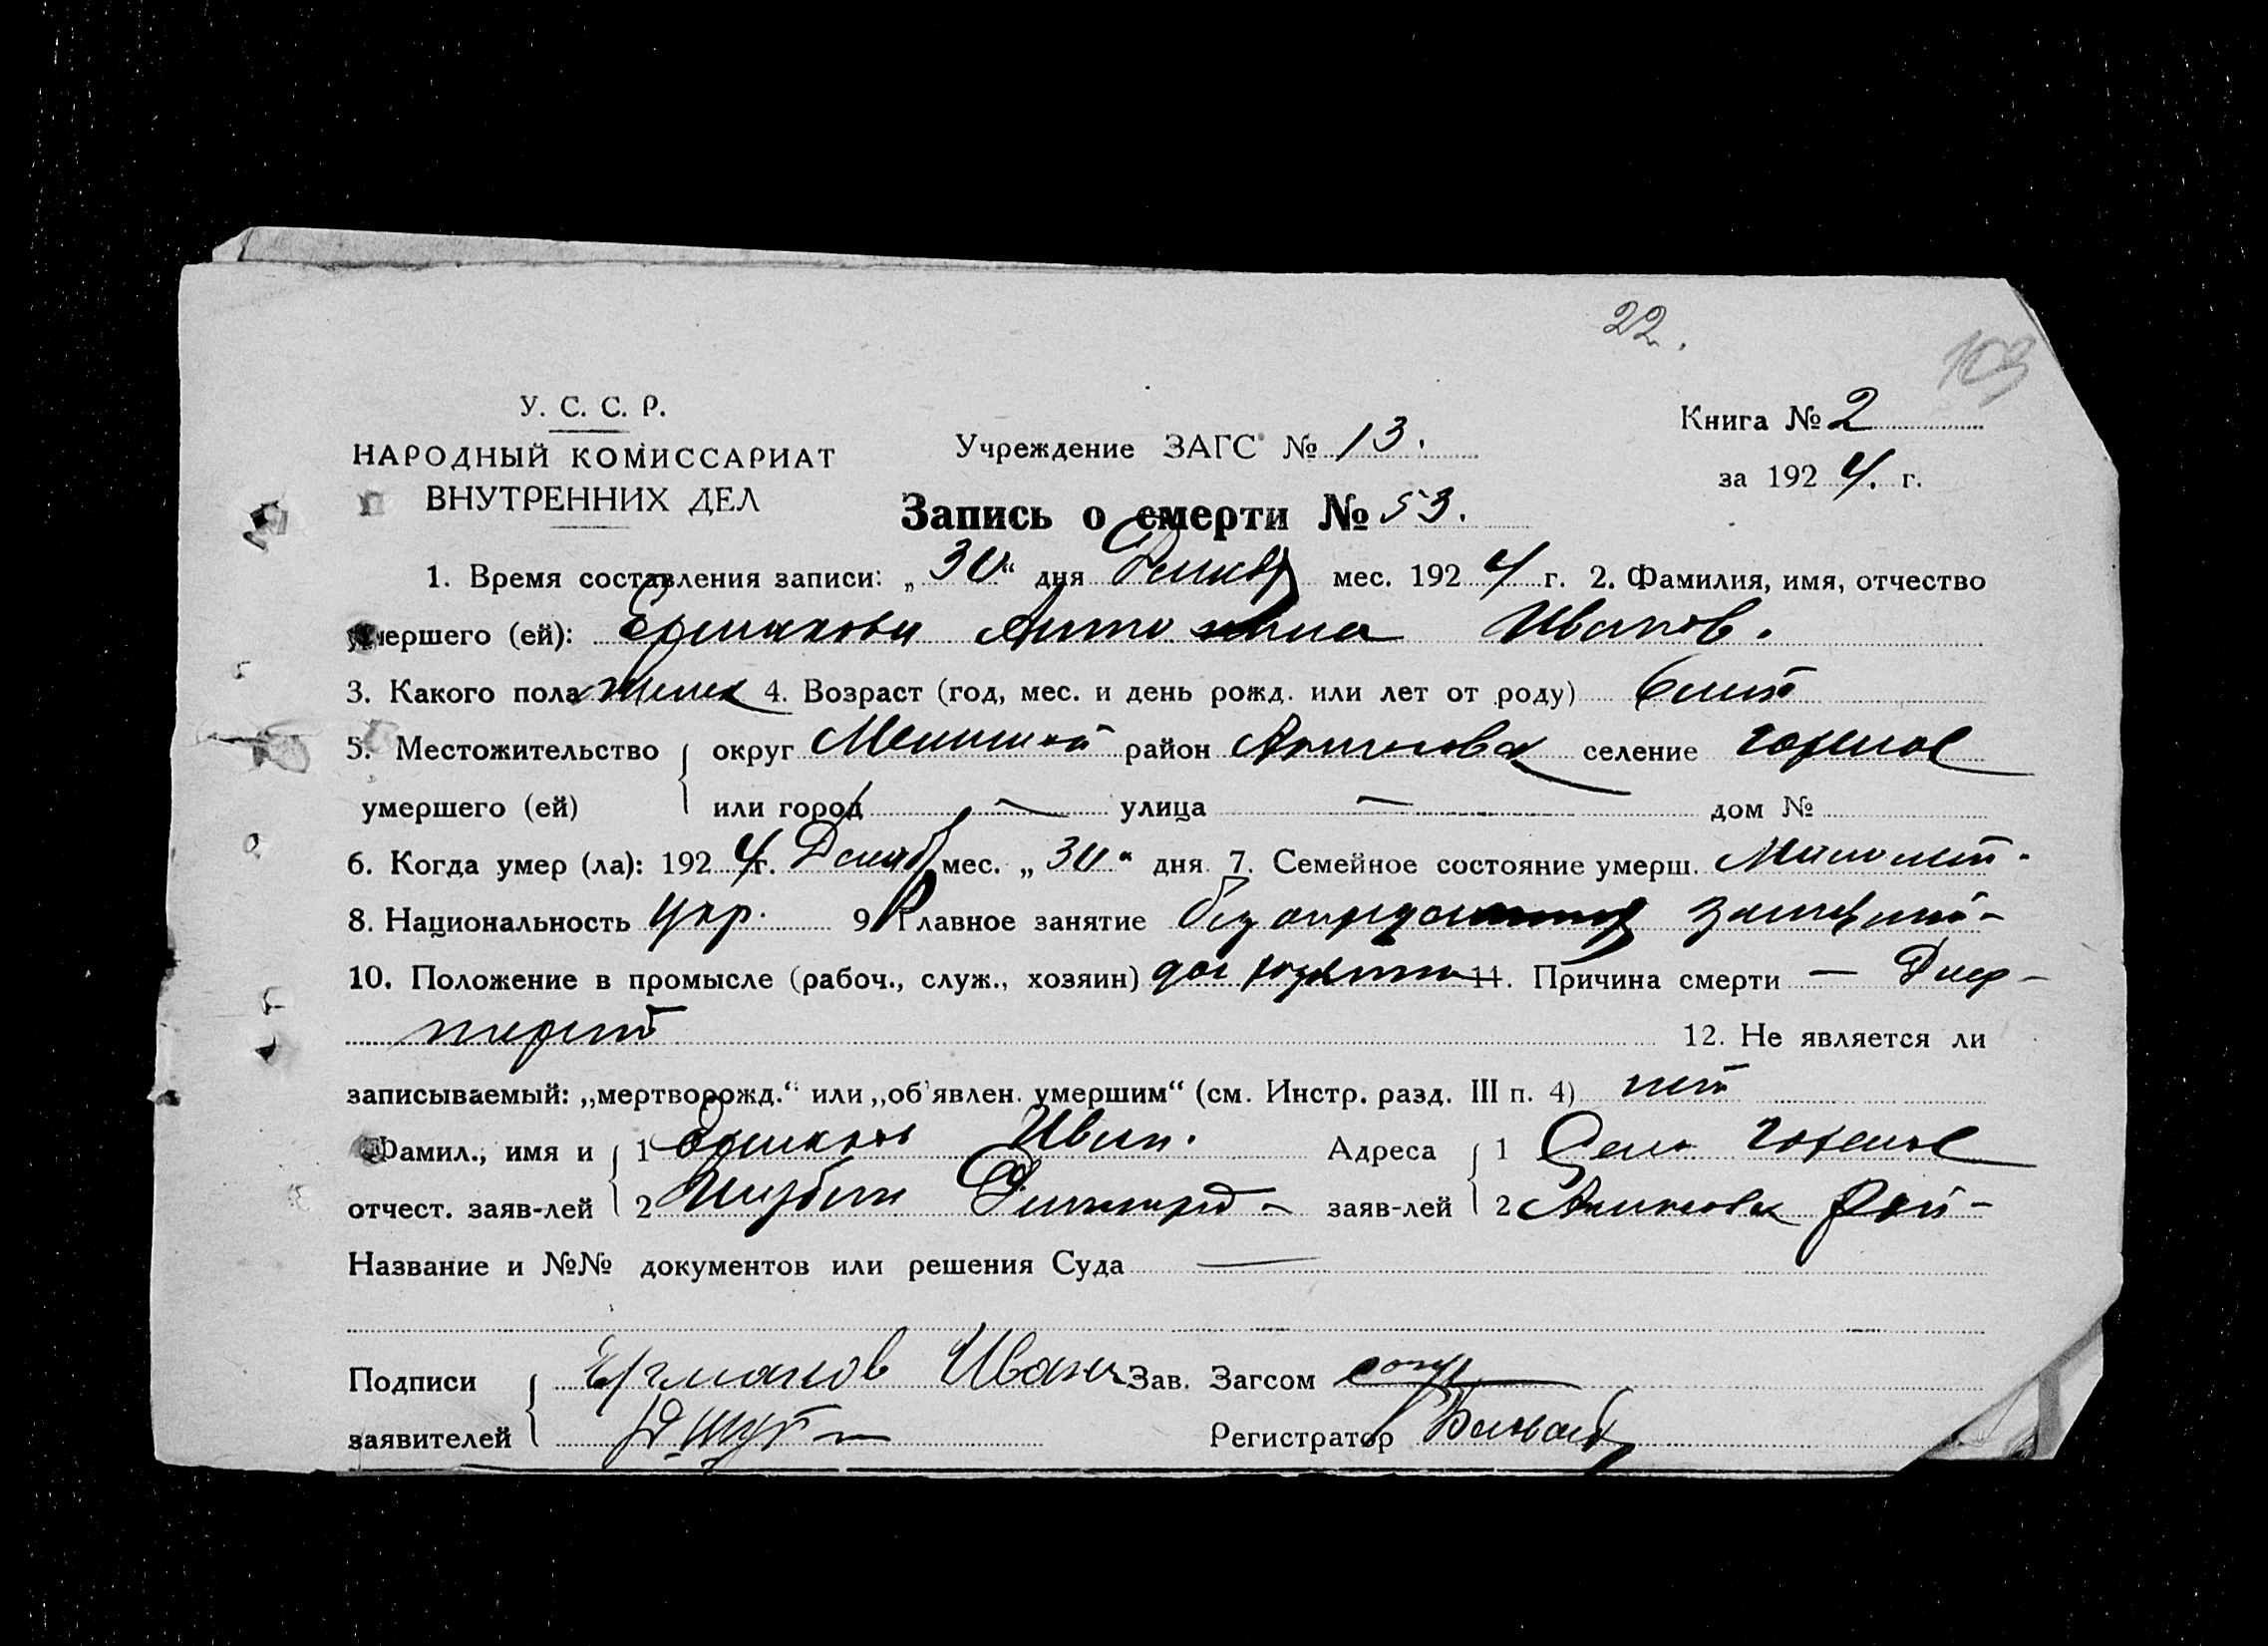 22.
109
У. С. С. Р.
НАРОДНЫЙ КОМИССАРИАТ
ВНУТРЕННИХ ДЕЛ
Учреждение ЗАГС № 13.
Книга № 2
за 1924. г.
Запись о смерти № 53.
1. Время составления записи: „30“ дня Декабр мес. 1924 г. 2. Фамилия, имя, отчество
умершего (ей): Ермакова Антонина Иванов.
3. Какого пола женск 4. Возраст (год, мес. и день рожд. или лет от роду) 6 лет
5. Местожительство округ район селение
умершего (ей) или город — улица — дом №
6. Когда умер (ла): 1924 г. Декабр мес. „30“ дня 7. Семейное состояние умерш. Малолет-
8. Национальность Укр. 9. Главное занятие без занятий-
10. Положение в промысле (рабоч., служ., хозяин) 11. Причина смерти — Диф-
терит
12. Не является ли
записываемый: „мертворожд.“ или „об'явлен. умершим“ (см. Инстр. разд. III п. 4) нет
Фамил., имя и 1 Ермаков Иван. Адреса 1 Село
отчест. заяв-лей 2 заяв-лей 2 Рай-
Название и №№ документов или решения Суда —
Подписи Ермаков Иван Зав. Загсом
заявителей Регистратор